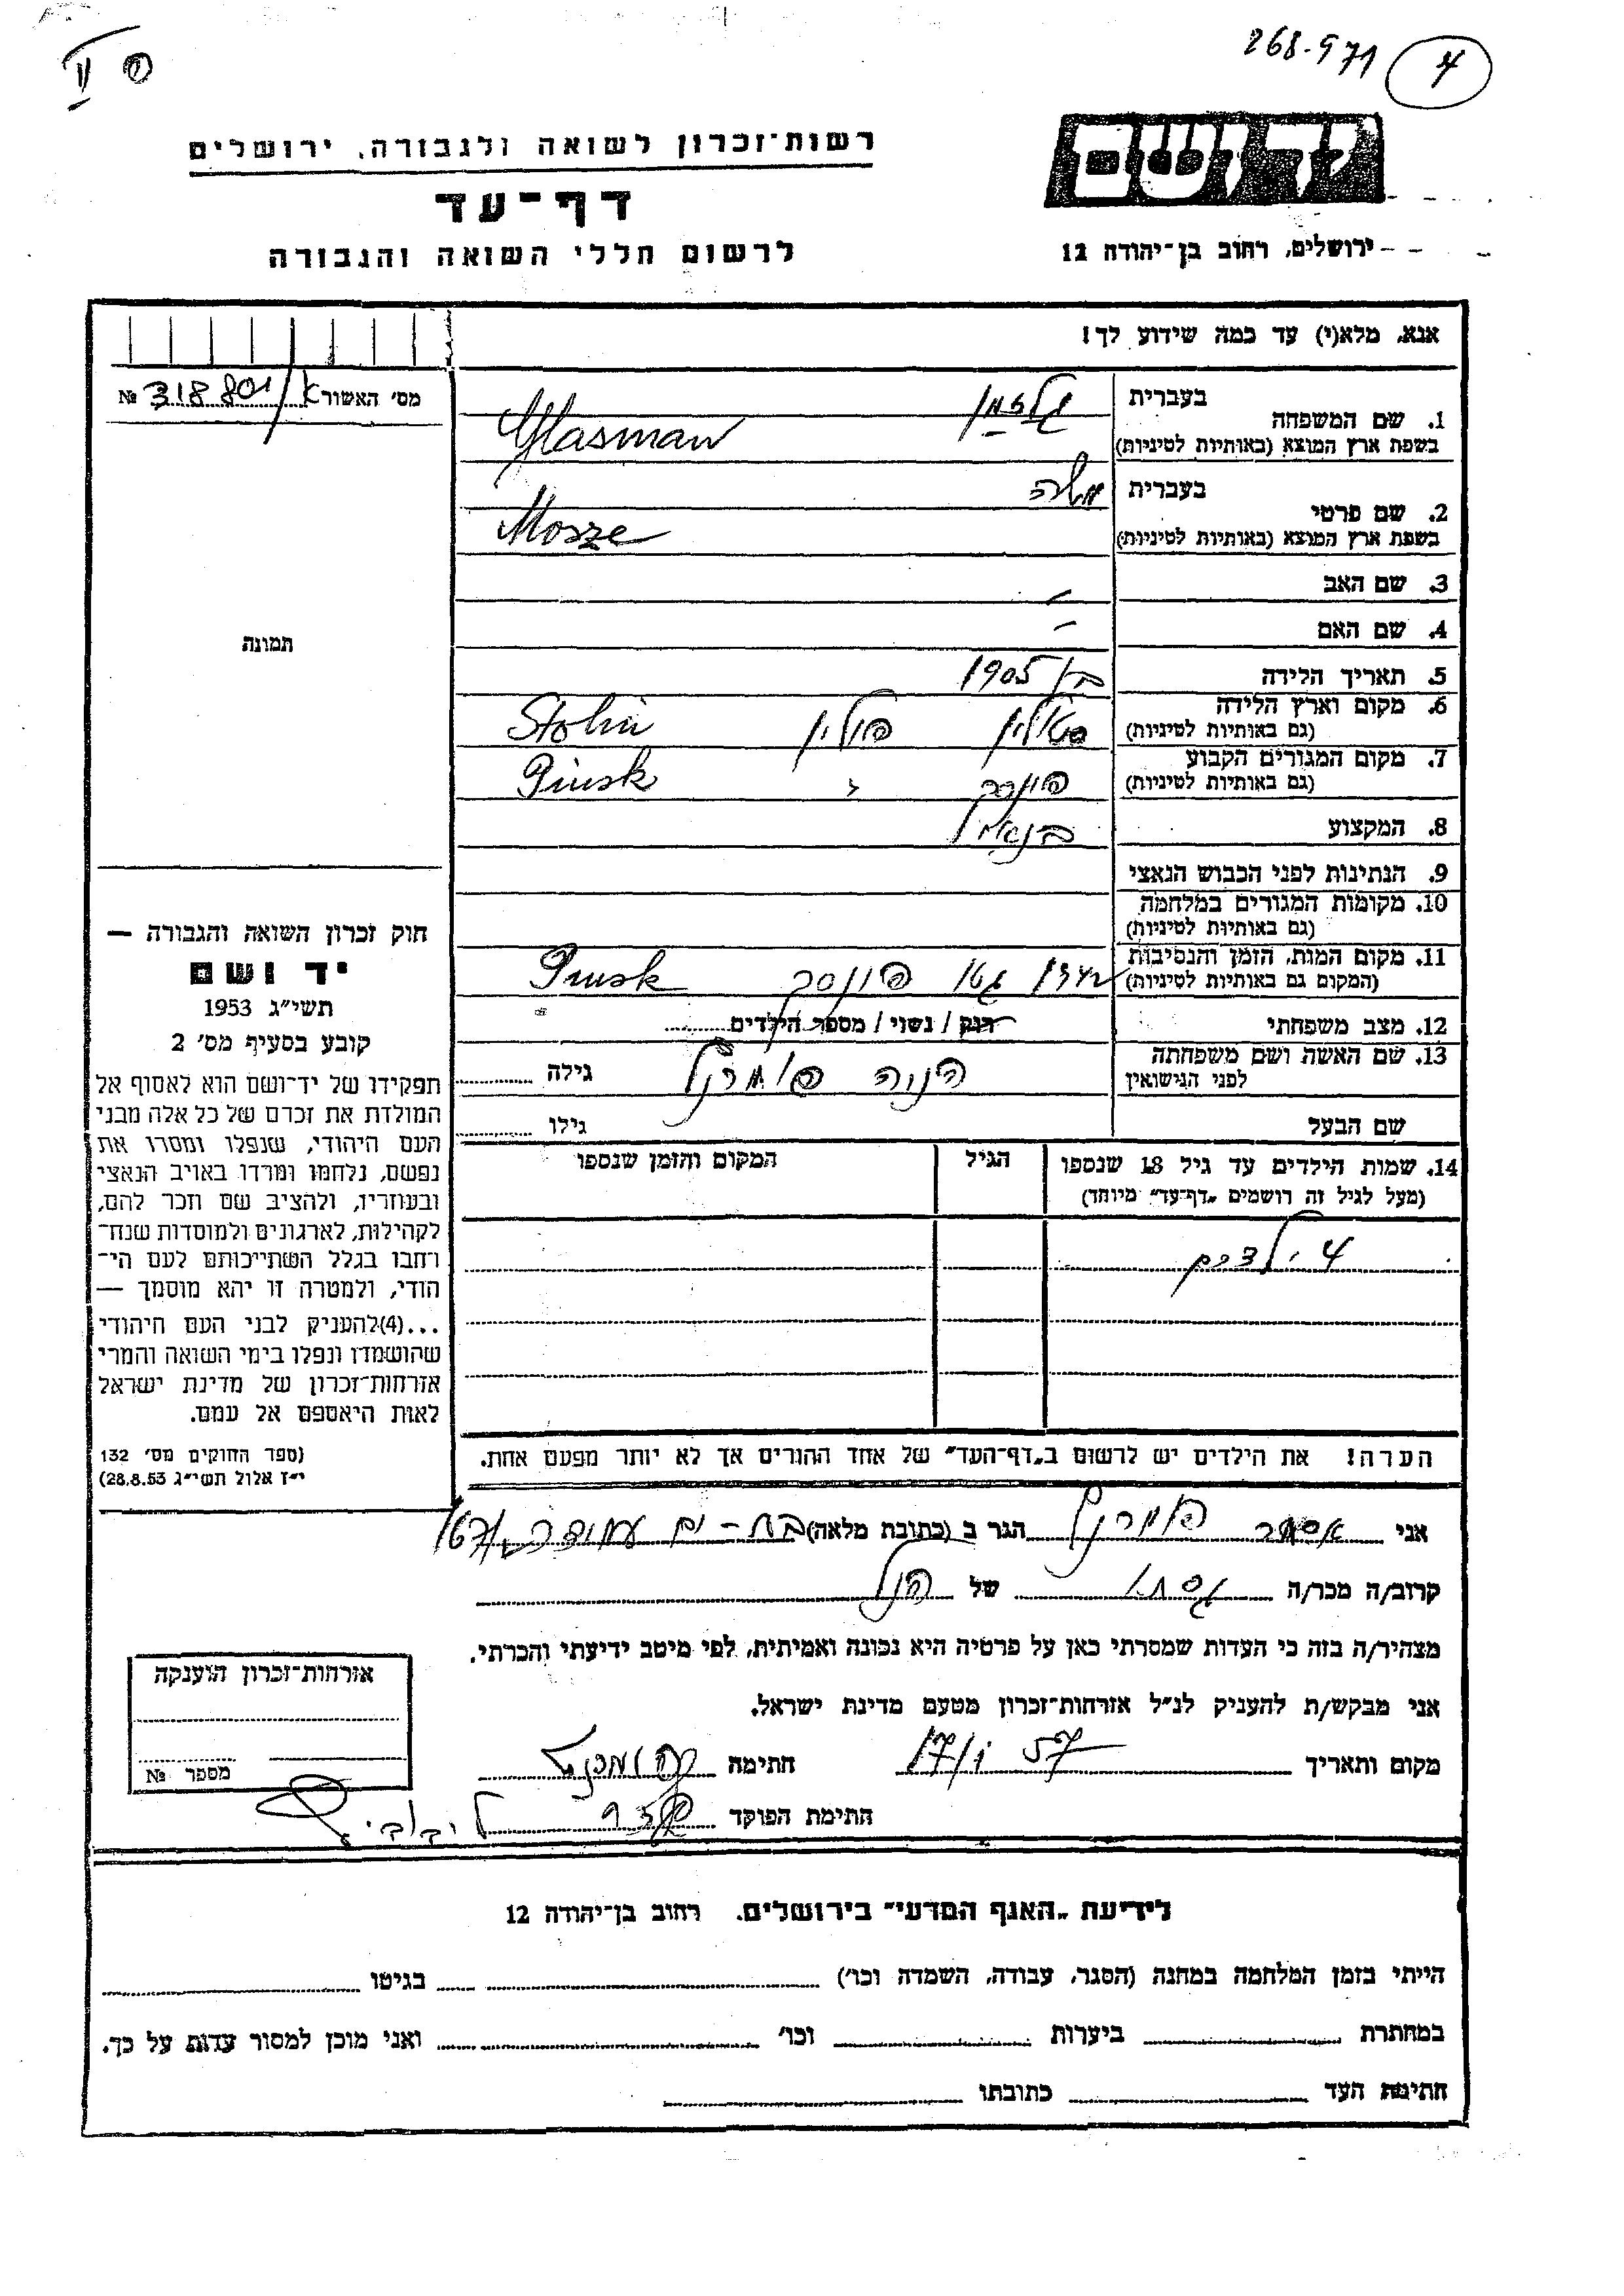 268-971 4
II
יד ושם
רשות־זכרון לשואה ולגבורה, ירושלים
דף־עד
לרשום חללי השואה והגבורה
ירושלים, רחוב בן־יהודה 12
אנא, מלא(י) עד כמה שידוע לך!
מס׳ האשור № 318801/א
תמונה
בעברית גלזמן
1. שם המשפחה
בשפת ארץ המוצא (באותיות לטיניות) Glasman
בעברית משה
2. שם פרטי
בשפת ארץ המוצא (באותיות לטיניות) Mosze
3. שם האב –
4. שם האם –
5. תאריך הלידה בן 1905
6. מקום וארץ הלידה
(גם באותיות לטיניות) סטולין פולין Stolin
7. מקום המגורים הקבוע
(גם באותיות לטיניות) פינסק " Pinsk
8. המקצוע
9. הנתינות לפני הכבוש הנאצי
10. מקומות המגורים במלחמה
(גם באותיות לטיניות)
11. מקום המות, הזמן והנסיבות
(המקום גם באותיות לטיניות) גטו פינסק Pinsk
12. מצב משפחתי רוק / נשוי / מספר הילדים
13. שם האשה ושם משפחתה
לפני הנישואין גילה
שם הבעל גילו
14. שמות הילדים עד גיל 18 שנספו
(מעל לגיל זה רושמים „דף־עד״ מיוחד)
הגיל
המקום והזמן שנספו
4 ילדים
הערה! את הילדים יש לרשום ב„דף־העד״ של אחד ההורים אך לא יותר מפעם אחת.
חוק זכרון השואה והגבורה —
יד ושם
תשי״ג 1953
קובע בסעיף מס׳ 2
תפקידו של יד־ושם הוא לאסוף אל
המולדת את זכרם של כל אלה מבני
העם היהודי, שנפלו ומסרו את
נפשם, נלחמו ומרדו באויב הנאצי
ובעוזריו, ולהציב שם וזכר להם,
לקהילות, לארגונים ולמוסדות שנח־
רחבו בגלל השתייכותם לעם הי־
הודי, ולמטרה זו יהא מוסמך —
...(4)להעניק לבני העם היהודי
שהושמדו ונפלו בימי השואה והמרי
אזרחות־זכרון של מדינת ישראל
לאות היאספם אל עמם.
(ספר החוקים מס׳ 132
י״ז אלול תשי״ג 28.8.53)
אני אסתר הגר ב (כתובת מלאה) בת-ים
קרוב/ה מכר/ה גיסתו של הנ״ל
מצהיר/ה בזה כי העדות שמסרתי כאן על פרטיה היא נכונה ואמיתית, לפי מיטב ידיעתי והכרתי.
אני מבקש/ת להעניק לנ״ל אזרחות־זכרון מטעם מדינת ישראל.
מקום ותאריך 17/V 57 חתימה
חתימת הפוקד
אזרחות־זכרון הוענקה
מספר №
לידיעת „האגף המדעי״ בירושלים. רחוב בן־יהודה 12
הייתי בזמן המלחמה במחנה (הסגר, עבודה, השמדה וכו׳) בגיטו
במחתרת ביערות וכו׳ ואני מוכן למסור עדות על כך.
חתימת העד כתובתו